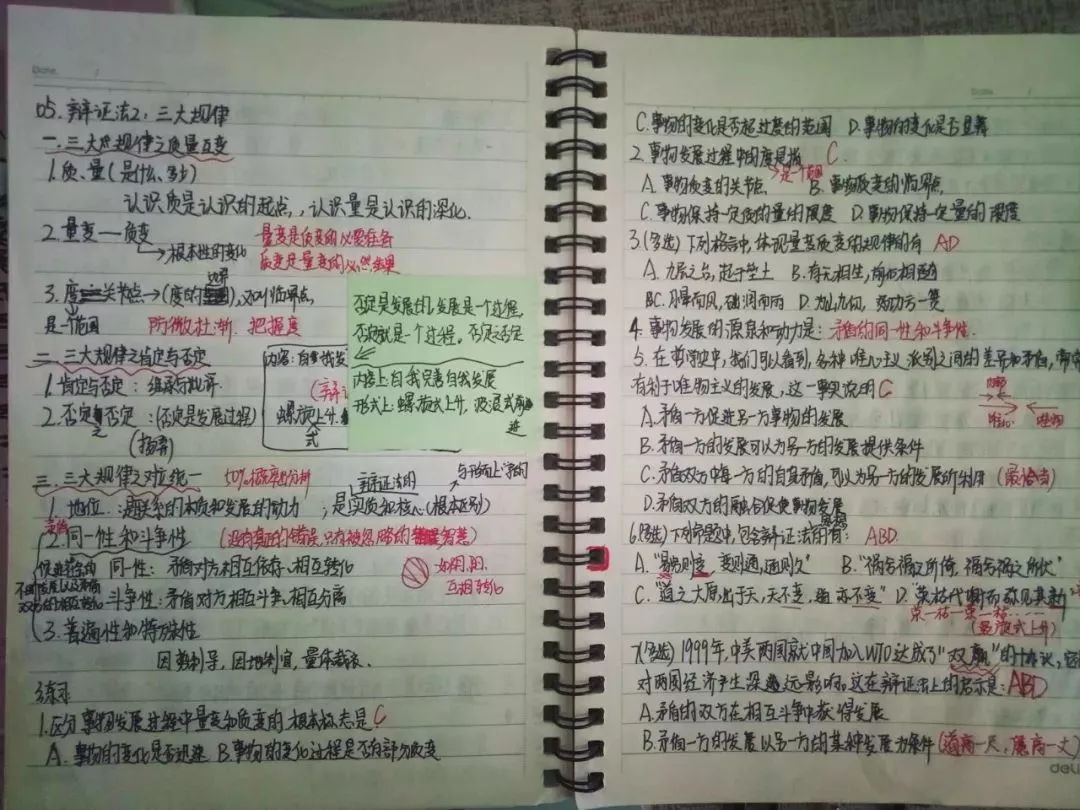 Date.
05. 辩证法2, 三大规律
一. 三大规律之质量互变
1. 质、量(是什么、多少)
认识质是认识的起点, 认识量是认识的深化.
2. 量变——质变
量变是质变的必要准备
→根本性的变化
质变是量变的必然结果
3. 度 关节点→(度的 ), 又叫临界点,
是一个范围 防微杜渐 把握度
否定是发展的, 发展是一个过程,
否定就是一个过程. 否定之否定
内容上: 自我完善自我发展
形式上: 螺旋式上升, 波浪式前进
二. 三大规律之肯定与否定
内容: 自我发
1. 肯定与否定: 继承与批评.
2. 否定之否定: (否定是发展过程)
螺旋上升
式
(扬弃)
三. 三大规律之对立统一
辩证法的
1. 地位: 联系的本质和发展的动力, 是实质和核心(根本区别)
2. 同一性和斗争性 (没有真正的错误, 只有被忽略的智慧)
同一性: 矛盾对方相互依存、相互转化
如阴、阳.
互相转化
斗争性: 矛盾对方相互斗争、相互分离
3. 普遍性和特殊性
因势利导, 因地制宜, 量体裁衣.
练习
1. 区分事物发展过程中量变和质变的根本标志是 C
A. 事物的变化是否迅速 B. 事物的变化过程是否有部分质变
Date.
C. 事物的变化是否超过度的范围 D. 事物的变化是否显著
2. 事物发展过程中的度是指 C.
→是一个范围
A. 事物质变的关节点 B. 事物质变的临界点
C. 事物保持一定质的量的限度 D. 事物保持一定量的限度
3. (多选) 下列格言中, 体现量变质变的规律的有 AD
A. 九层之台, 起于垒土 B. 有无相生, 前后相随
C. 月晕而风, 础润而雨 D. 为山九仞, 功亏一篑
4. 事物发展的源泉和动力是: 矛盾的同一性和斗争性.
5. 在哲学史中, 我们可以看到, 各种唯心主义派别之间的差异和矛盾, 常常
有利于唯物主义的发展, 这一事实说明 C
唯心 唯物
A. 矛盾一方促进另一方事物的发展
B. 矛盾一方的发展可以为另一方的发展提供条件
C. 矛盾双方中每一方的自身矛盾, 可以为另一方的发展所利用 (最恰当)
D. 矛盾双方的融合促使事物发展
6. (多选) 下列命题中, 包含辩证法思想的有: ABD.
A. "易穷则变, 变则通, 通则久" B. "祸兮福之所倚, 福兮祸之所伏"
C. "道之大原出于天, 天不变, 道亦不变" D. "荣枯代谢而弥见其新"
荣—枯—荣—枯……
(螺旋式上升)
7. (多选) 1999年, 中美两国就中国加入WTO达成了"双赢"的协议,
对两国经济产生深远影响. 这在辩证法上的启示是: ABD
A. 矛盾的双方在相互斗争中获得发展
B. 矛盾一方的发展以另一方的某种发展为条件 (道高一尺, 魔高一丈)
deli